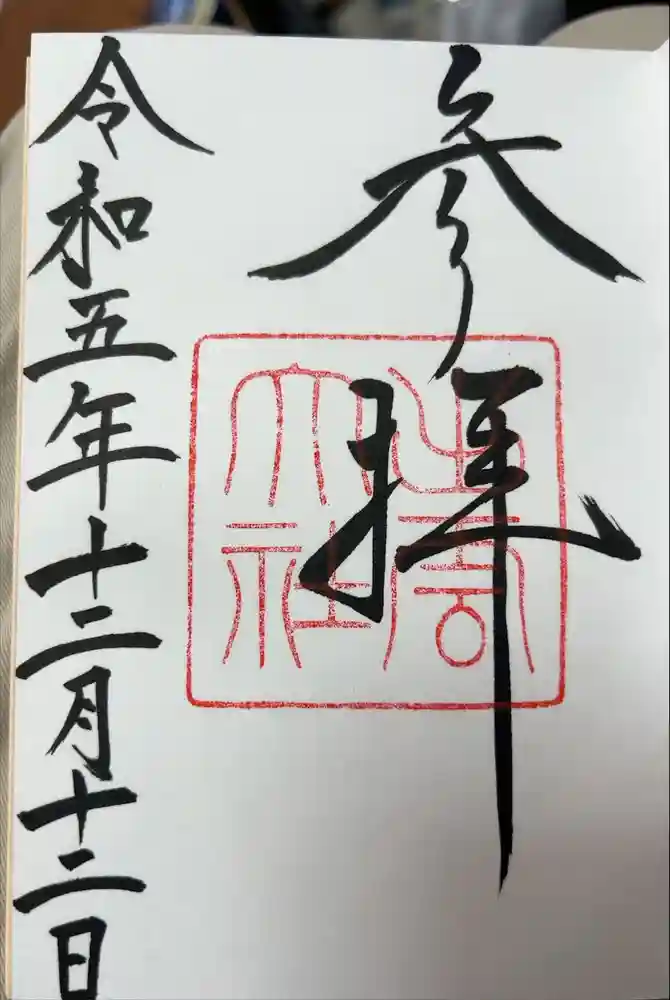 参拝
出雲
大社
令和五年十二月十二日